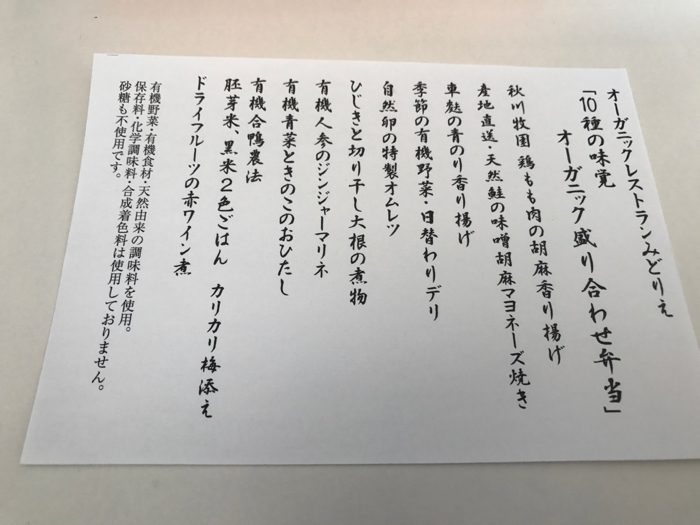 オーガニックレストランみどりえ
「10種の味覚
オーガニック盛り合わせ弁当」
秋川牧園 鶏もも肉の胡麻香り揚げ
産地直送・天然鮭の味噌胡麻マヨネーズ焼き
車麩の青のり香り揚げ
季節の有機野菜・日替わりデリ
自然卵の特製オムレツ
ひじきと切り干し大根の煮物
有機人参のジンジャーマリネ
有機青菜ときのこのおひたし
有機合鴨農法
胚芽米、黒米2色ごはん カリカリ梅添え
ドライフルーツの赤ワイン煮
有機野菜・有機食材・天然由来の調味料を使用。
保存料・化学調味料・合成着色料は使用しておりません。
砂糖も不使用です。